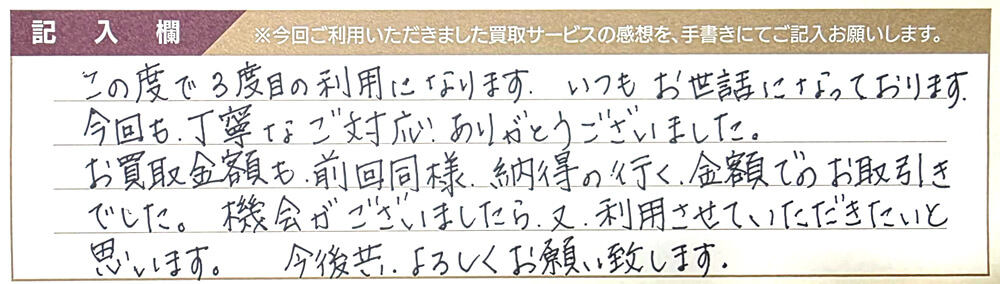 記入欄 ※今回ご利用いただきました買取サービスの感想を、手書きにてご記入お願いします。
この度で3度目の利用になります. いつもお世話になっております.
今回も、丁寧なご対応、ありがとうございました。
お買取金額も、前回同様、納得の行く、金額でのお取引き
でした。 機会がございましたら、又、利用させていただきたいと
思います。 今後共、よろしくお願い致します.